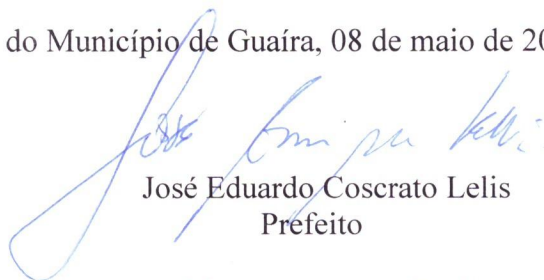 do Município de Guaíra, 08 de maio de 20
José Eduardo Coscrato Lelis
Prefeito